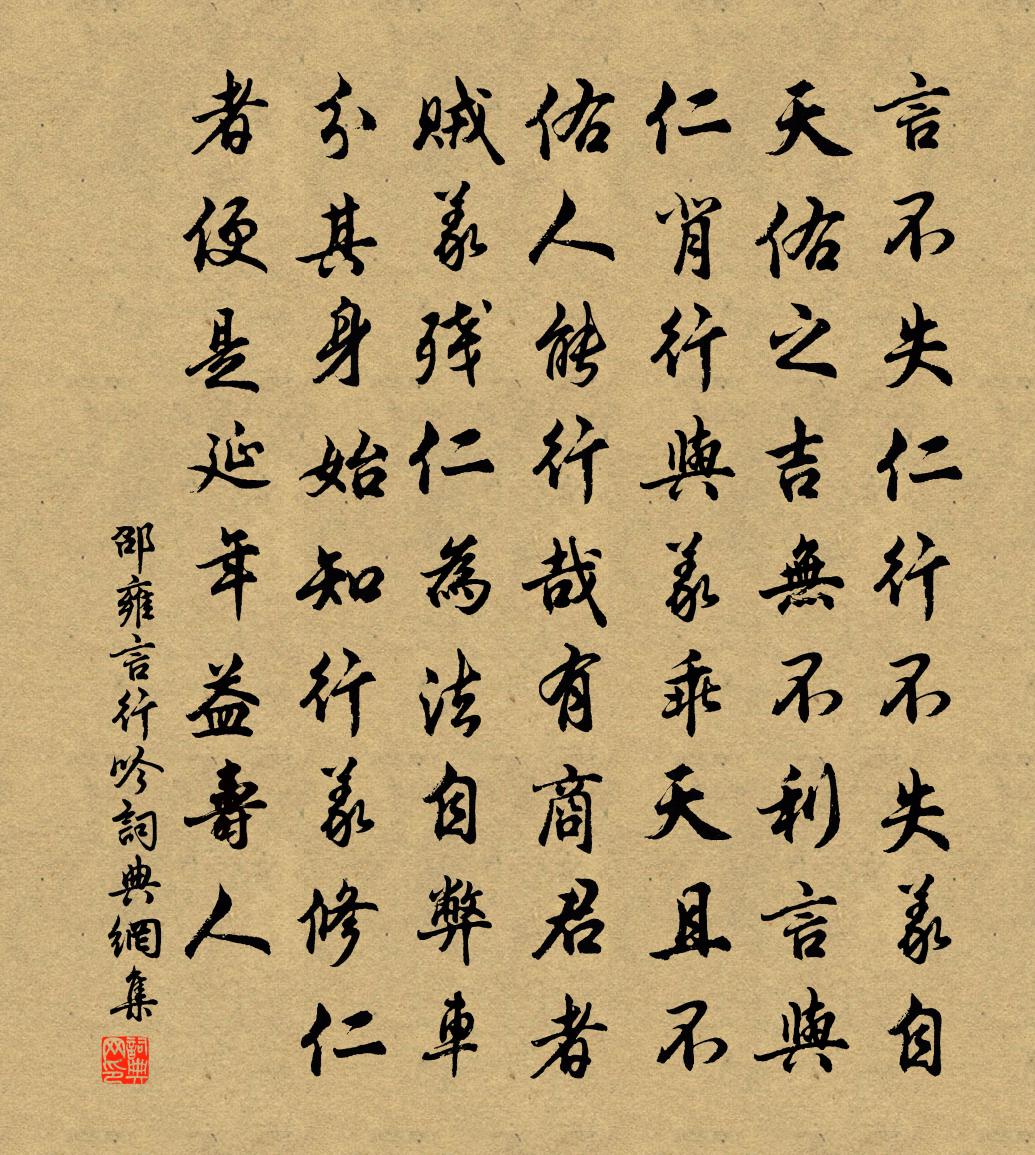 言不失仁行不失義自
天佑之吉無不利言與
仁肖行與義乖天且不
佑人能行哉有商君者
賊義残仁為法自弊車
分其身始知行義修仁
者便是延年益壽人
邵雍言行吟詞典網集
詞典网印